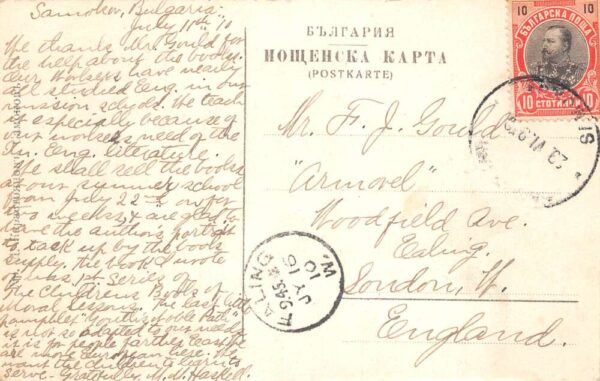 Samokov, Bulgaria
July 11th '10
We thank Mr. Gould for
the help about the books.
Our workers have nearly
all studied Eng. in our
mission schools. We teach
is especially because of
our workers need of the
Eng. literature.
We shall sell the books
at our summer school
from July 22nd on for
two weeks & are glad to
have the author's portrait
to tack up by the books
supply. The book I wrote
of was 1st Series of
The Children's Book of
Moral Lessons. The last
pamphlet "On the Noble Path"
is not so adapted to our needs
it is for people farther East. We
are more European here. We
want the children to learn to
serve. Gratefully M. M. Haskell.
БЪЛГАРИЯ
ПОЩЕНСКА КАРТА
(POSTKARTE)
10 10
БЪЛГАРСКА ПОЩА
10 СТОТИНКИ 10
Mr. F. J. Gould
"Armorel"
Woodfield Ave.
Ealing.
London, W.
England.
EALING
W.
9.45
JY 16
10